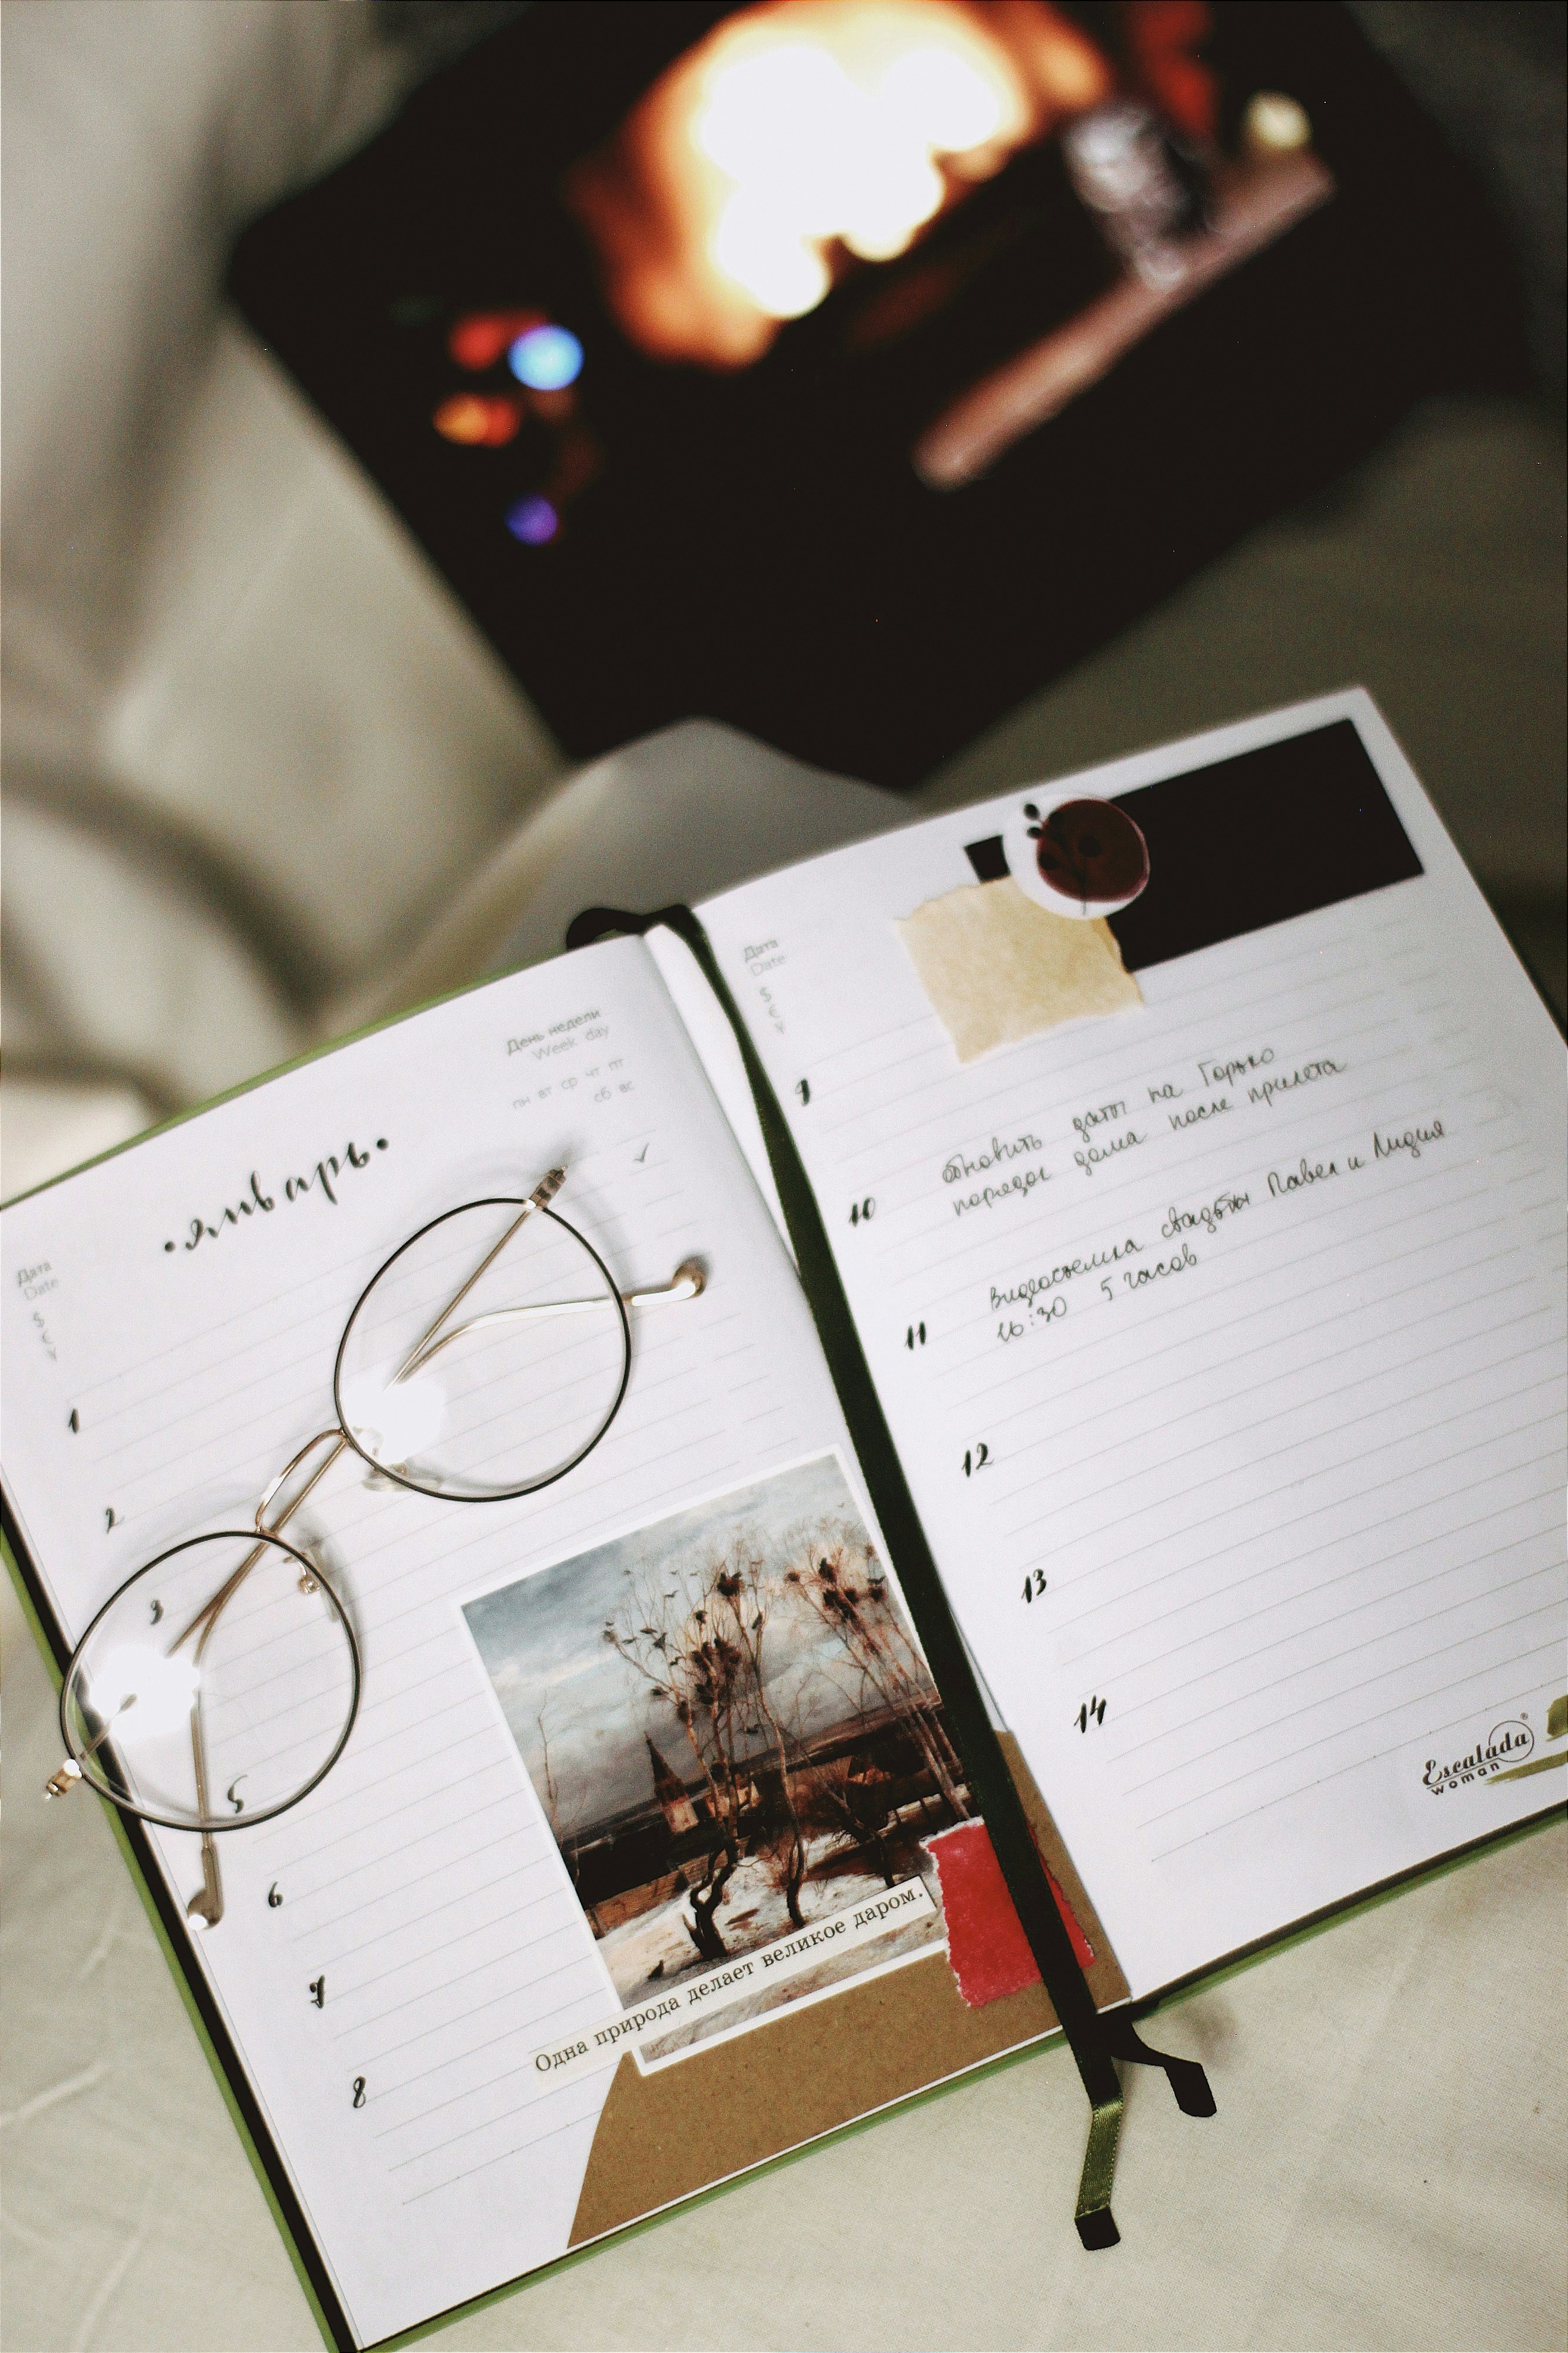 День недели
Week day
пн вт ср чт пт
сб вс
•январь.•
Дата
Date
$
€
1
2
3
5
6
7
8
Одна природа делает великое даром.
Дата
Date
$
€
9
обновить даты на Горько
порядок дома после прилёта
10
Видеосъемка свадьбы Павел и Лидия
16:30 5 часов
11
12
13
14
Escalada®
woman